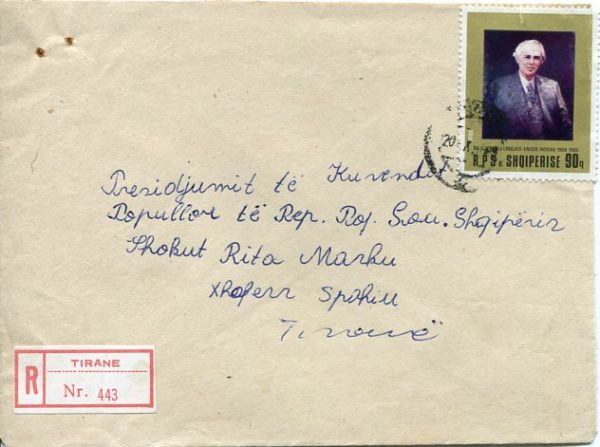 R P S E SHQIPERISE 90q
20 X
Presidjumit të Kuvendit
Popullor të Rep. Pop. Soc. Shqipëris
Shokut Rita Marku
Xhaferr Spahiu
Tiranë
TIRANE
R
Nr. 443